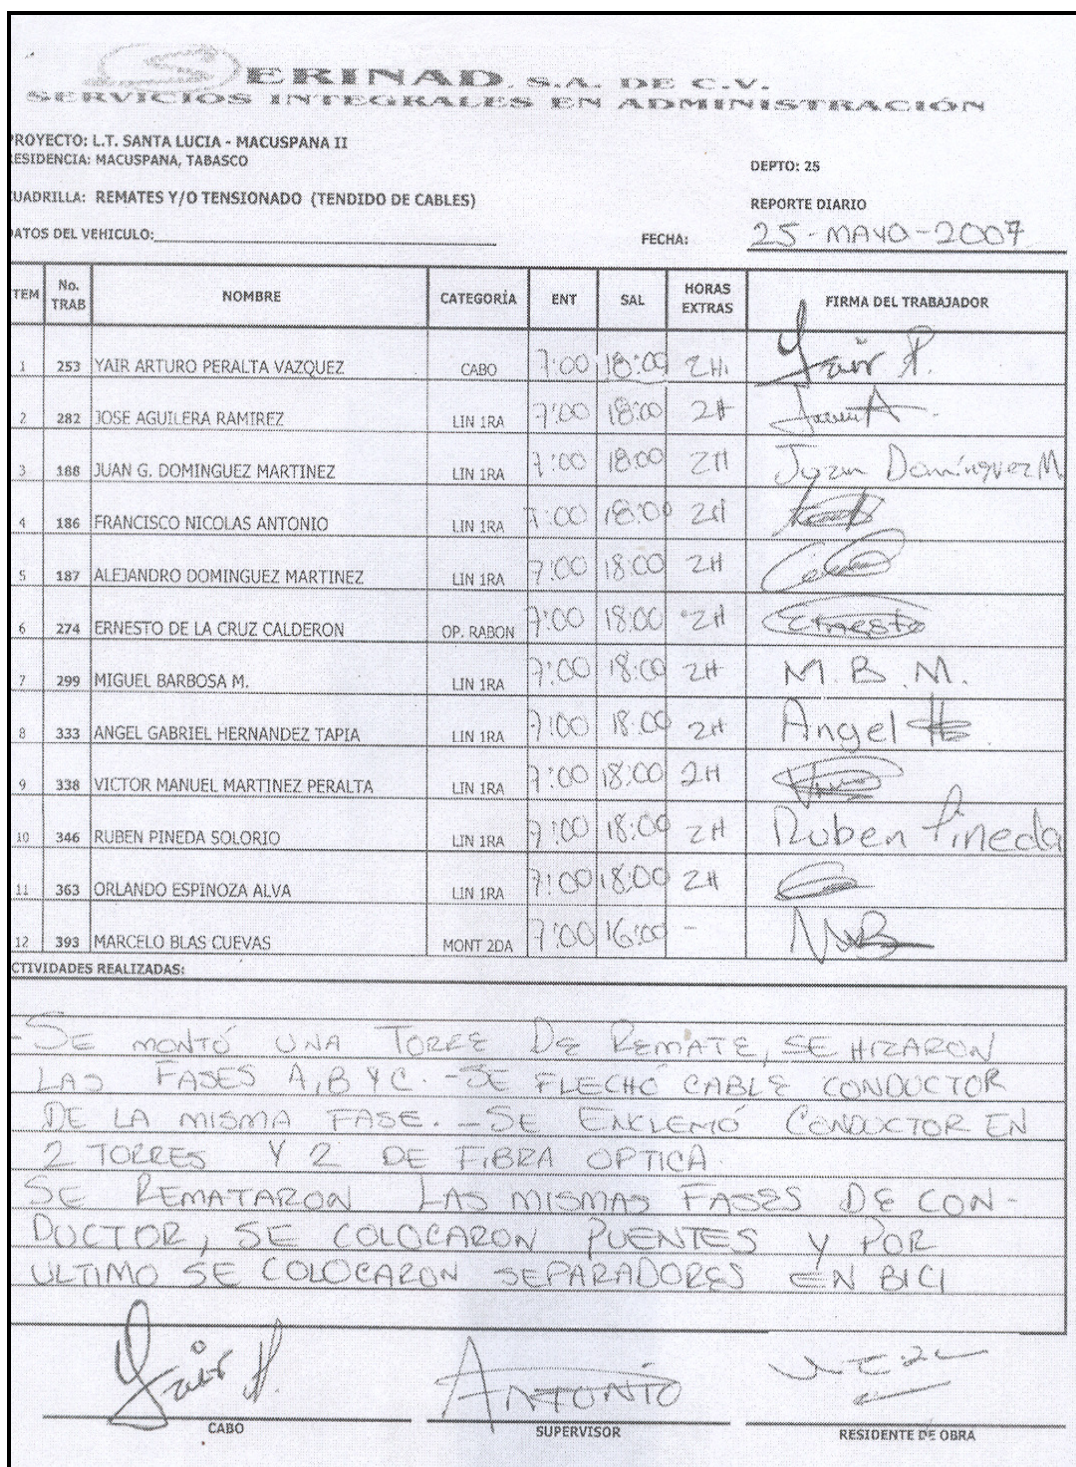 SERINAD, S.A. DE C.V.
SERVICIOS INTEGRALES EN ADMINISTRACIÓN
PROYECTO: L.T. SANTA LUCIA - MACUSPANA II
RESIDENCIA: MACUSPANA, TABASCO
DEPTO: 25
CUADRILLA: REMATES Y/O TENSIONADO (TENDIDO DE CABLES)
REPORTE DIARIO
DATOS DEL VEHICULO:
FECHA: 25-MAYO-2007
ITEM No. TRAB NOMBRE CATEGORÍA ENT SAL HORAS EXTRAS FIRMA DEL TRABAJADOR
1 253 YAIR ARTURO PERALTA VAZQUEZ CABO 7:00 18:00 2H. Yair P.
2 282 JOSE AGUILERA RAMIREZ LIN 1RA 7:00 18:00 2H
3 188 JUAN G. DOMINGUEZ MARTINEZ LIN 1RA 7:00 18:00 2H Juan Domínguez M
4 186 FRANCISCO NICOLAS ANTONIO LIN 1RA 7:00 18:00 2H
5 187 ALEJANDRO DOMINGUEZ MARTINEZ LIN 1RA 7:00 18:00 2H
6 274 ERNESTO DE LA CRUZ CALDERON OP. RABON 7:00 18:00 2H Ernesto
7 299 MIGUEL BARBOSA M. LIN 1RA 7:00 18:00 2H M. B. M.
8 333 ANGEL GABRIEL HERNANDEZ TAPIA LIN 1RA 7:00 18:00 2H Angel H
9 338 VICTOR MANUEL MARTINEZ PERALTA LIN 1RA 7:00 18:00 2H
10 346 RUBEN PINEDA SOLORIO LIN 1RA 7:00 18:00 2H Ruben Pineda
11 363 ORLANDO ESPINOZA ALVA LIN 1RA 7:00 18:00 2H
12 393 MARCELO BLAS CUEVAS MONT 2DA 7:00 16:00 -
ACTIVIDADES REALIZADAS:
-SE MONTÓ UNA TORRE DE REMATE, SE HIZARON
LAS FASES A, B Y C. -SE FLECHÓ CABLE CONDUCTOR
DE LA MISMA FASE. -SE ENCLEMÓ CONDUCTOR EN
2 TORRES Y 2 DE FIBRA OPTICA.
SE REMATARON LAS MISMAS FASES DE CON-
DUCTOR, SE COLOCARON PUENTES Y POR
ULTIMO SE COLOCARON SEPARADORES EN BICI
Yair P. ANTONIO
CABO SUPERVISOR RESIDENTE DE OBRA